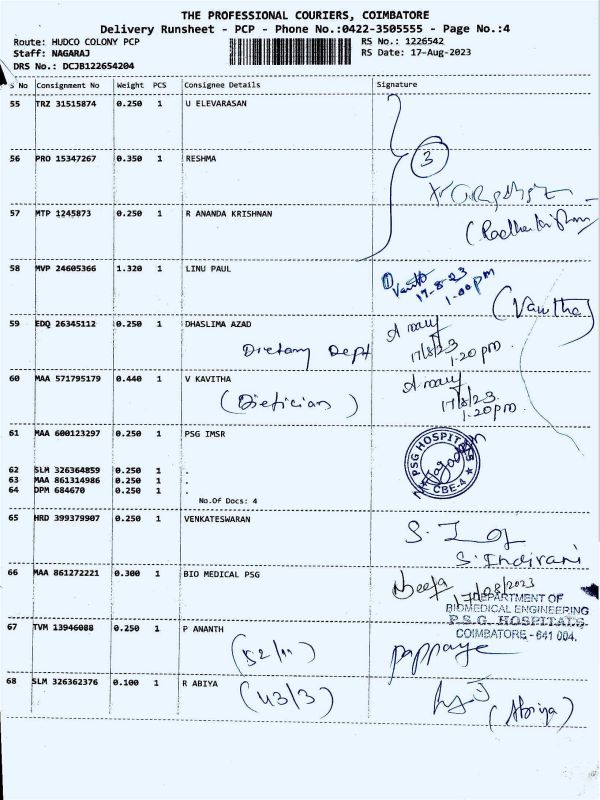 THE PROFESSIONAL COURIERS, COIMBATORE
Delivery Runsheet - PCP - Phone No.:0422-3505555 - Page No.:4
Route: HUDCO COLONY PCP
Staff: NAGARAJ
DRS No.: DCJB122654204
RS No.: 1226542
RS Date: 17-Aug-2023
S No Consignment No Weight PCS Consignee Details Signature
55 TRZ 31515874 0.250 1 U ELEVARASAN
3
56 PRO 15347267 0.350 1 RESHMA
57 MTP 1245873 0.250 1 R ANANDA KRISHNAN
58 MVP 24605366 1.320 1 LINU PAUL
17-8-23
1.00pm
(Vanitha)
59 EDQ 26345112 0.250 1 DHASLIMA AZAD
Dietary Dept
17/8/23
1.20pm.
60 MAA 571795179 0.440 1 V KAVITHA
(Dietician)
17/8/23
1.20pm.
61 MAA 600123297 0.250 1 PSG IMSR
PSG HOSPITALS
CBE-4
62 SLM 326364859 0.250 1 .
63 MAA 861314986 0.250 1 .
64 DPM 684670 0.250 1 .
No.Of Docs: 4
65 HRD 399379907 0.250 1 VENKATESWARAN
S. Indirani
66 MAA 861272221 0.300 1 BIO MEDICAL PSG
17/08/2023
DEPARTMENT OF
BIOMEDICAL ENGINEERING
P.S.G. HOSPITALS
COIMBATORE - 641 004.
67 TVM 13946088 0.250 1 P ANANTH
(52/11)
68 SLM 326362376 0.100 1 R ABIYA
(43/3)
(Abiya)